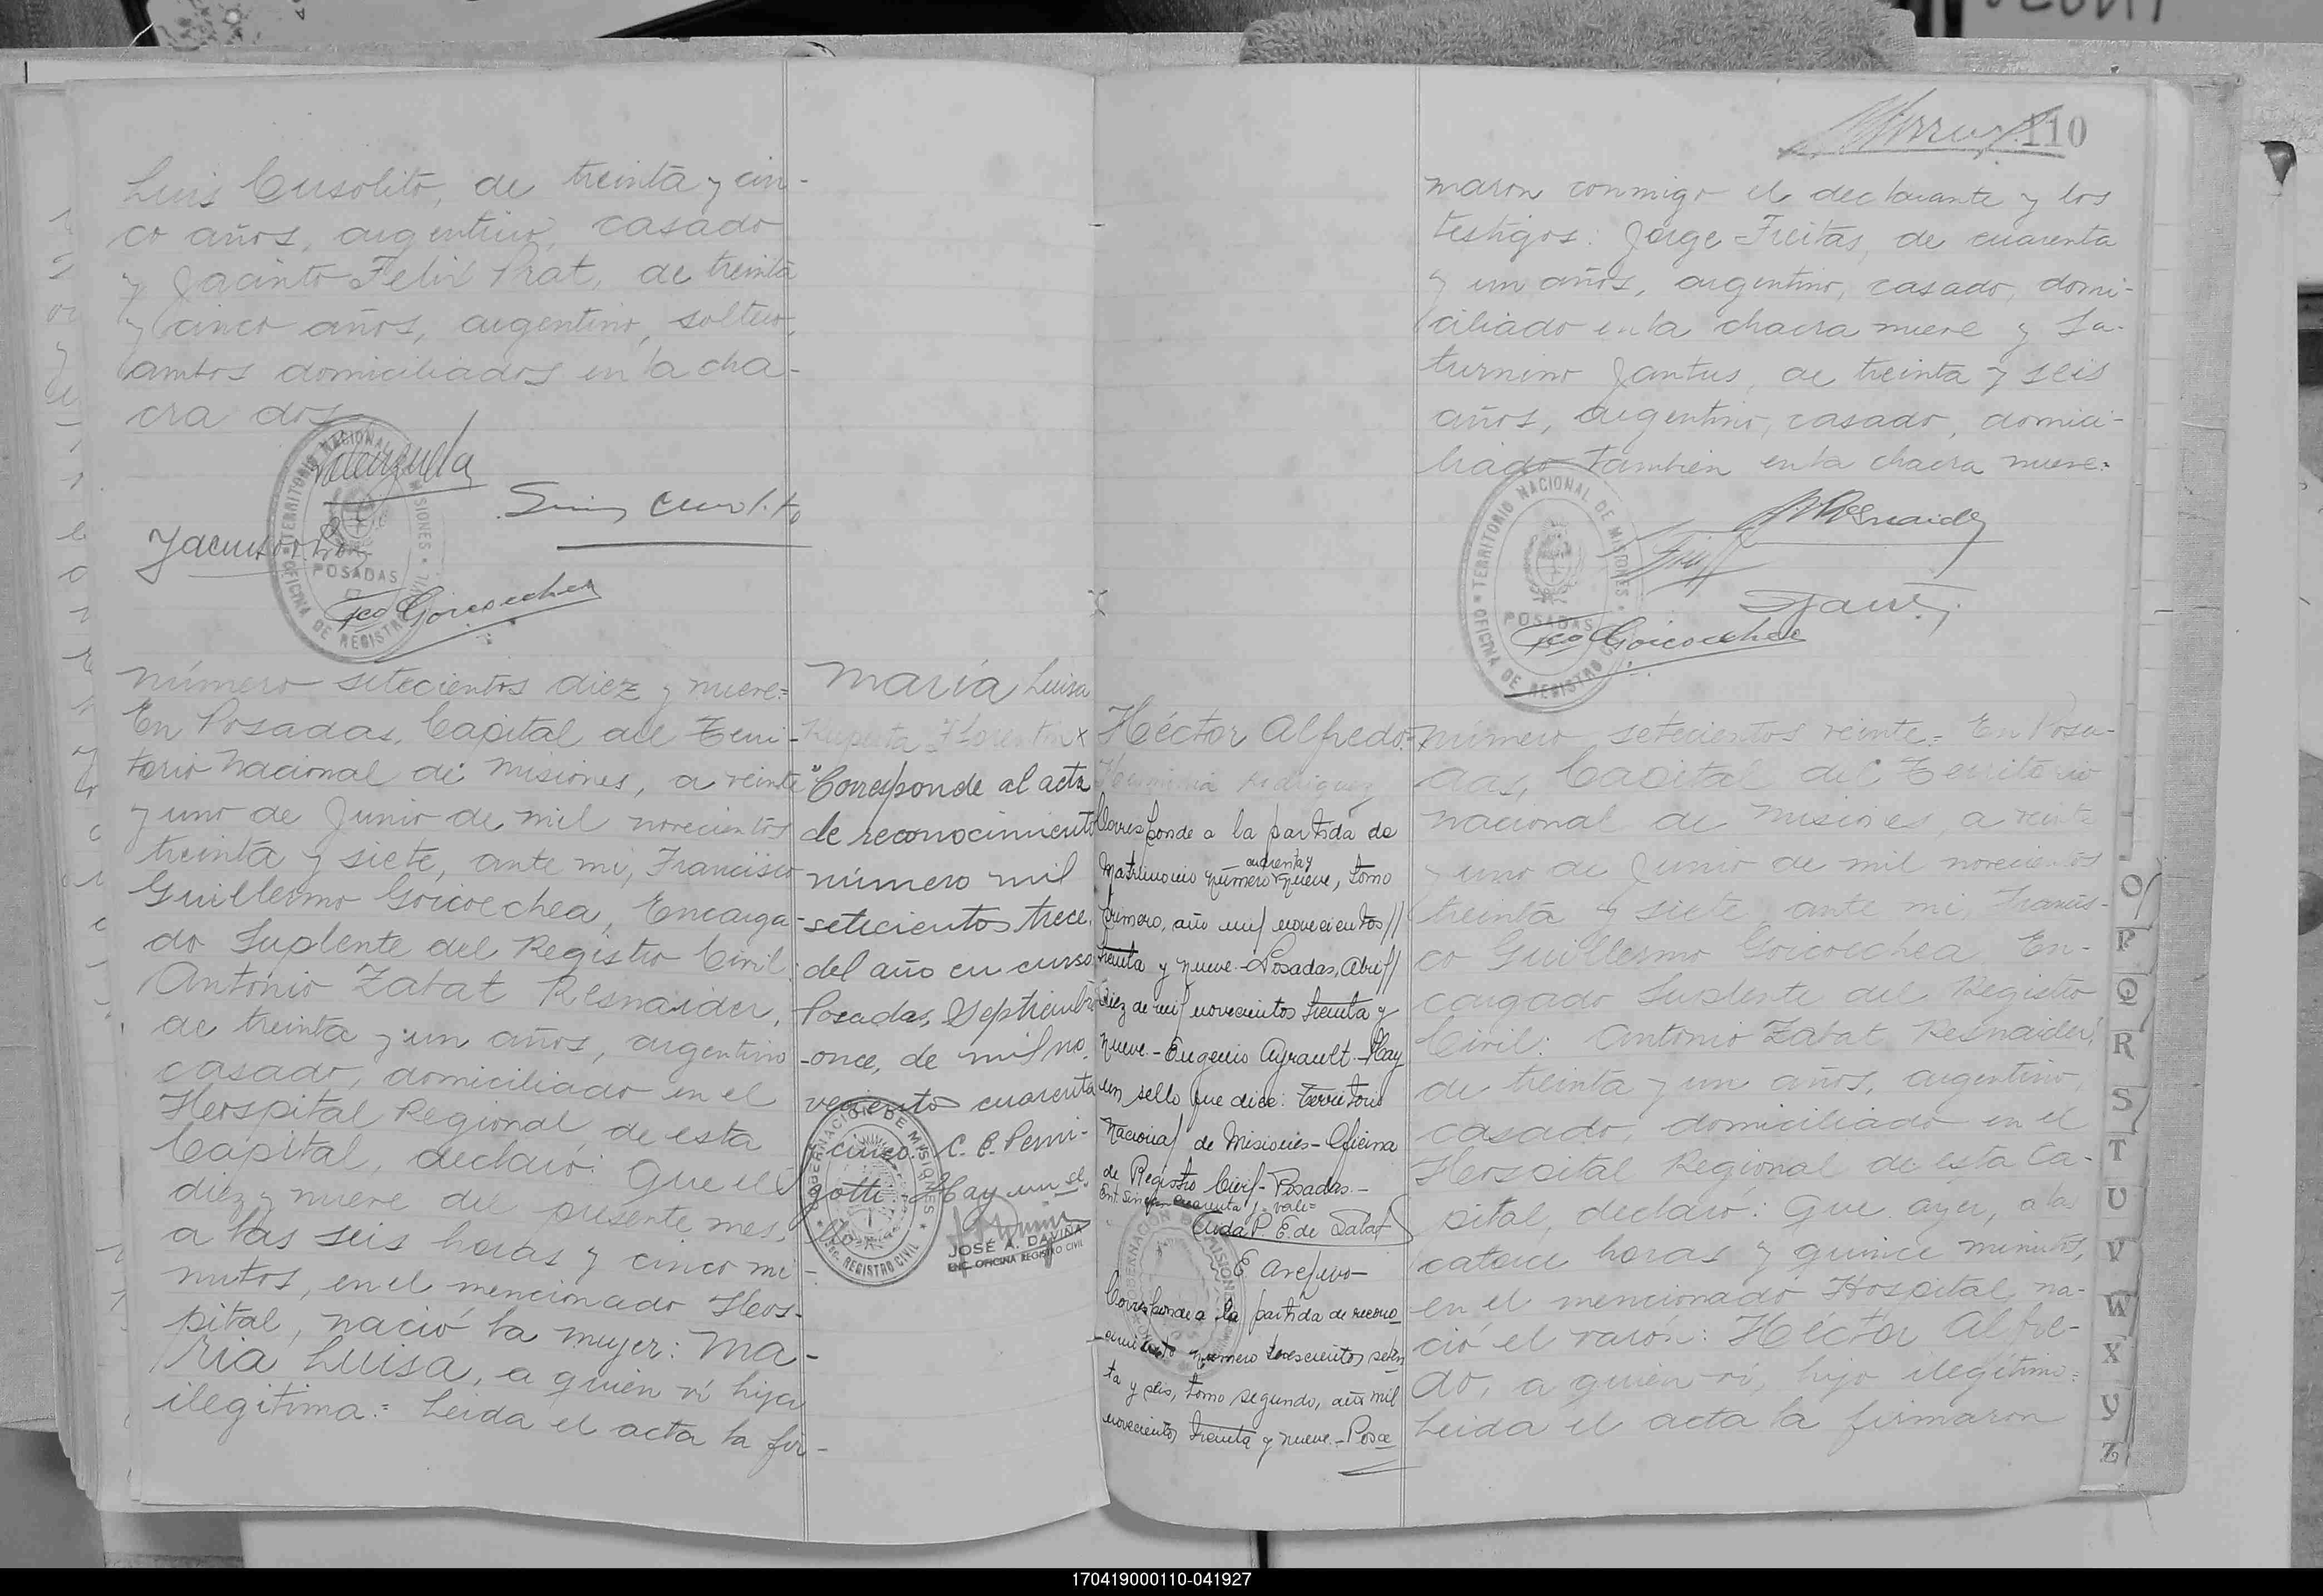 Luis Cusolito, de treinta y cin-
co años, argentino, casado
y Jacinto Felix Prat, de treinta
y cinco años, argentino, soltero,
ambos domiciliados en la cha-
cra dos.
TERRITORIO NACIONAL DE MISIONES
POSADAS
OFICINA DE REGISTRO CIVIL
Valenzuela
Luis Cusolito
Jacinto
Fco Goicoechea
número setecientos diez y nueve=
En Posadas, Capital del Terri-
torio Nacional de Misiones, a veinte
y uno de Junio de mil novecientos
treinta y siete, ante mi, Francisco
Guillermo Goicoechea, Encarga-
do Suplente del Registro Civil:
Antonio Zabat Resnaider,
de treinta y un años, argentino
casado, domiciliado en el
Hospital Regional de esta
Capital, declaró: Que el
diez y nueve del presente mes,
a las seis horas y cinco mi-
nutos, en el mencionado Hos-
pital, nació la mujer: Ma-
ria Luisa, a quien ví hija
ilegítima.= Leida el acta la fir-
María Luisa
Ruperta Florentin x
"Corresponde al acta
de reconocimiento
número mil
setecientos trece,
del año en curso
Posadas, Septiembre
-once, de mil no
veciento cuarenta
y cinco. C. B. Perni-
gotti. Hay un se
llo
GOBERNACION DE MISIONES
REGISTRO CIVIL
JOSÉ A. DAVIÑA
ENC. OFICINA REGISTRO CIVIL
110
maron conmigo el declarante y los
testigos: Jorge Freitas, de cuarenta
y un años, argentino, casado, domi-
ciliado en la chacra nueve y Sa-
turnino Jantus, de treinta y seis
años, argentino, casado, domici-
liado también en la chacra nueve.=
TERRITORIO NACIONAL DE MISIONES
POSADAS
OFICINA DE REGISTRO CIVIL
Resnaider
Fco Goicoechea
Héctor Alfredo.=
Herminia Rodriguez
Corresponde a la partida de
Matrimonio número cuarenta y nueve, tomo
primero, año mil novecientos//
treinta y nueve.-Posadas, Abril//
diez de mil novecientos treinta y
nueve.-Eugenio Ayrault.-Hay
un sello que dice: Territorio
Nacional de Misiones-Oficina
de Registro Civil-Posadas.-
cuarenta y-vale=
P. E. de Zabat
E. Archivo-
Corresponde a la partida de recono
cimiento número trescientos seten
ta y seis, tomo segundo, año mil
novecientos treinta y nueve.-Posa
número setecientos veinte.= En Posa-
das, Capital del Territorio
nacional de Misiones, a veinte
y uno de Junio de mil novecientos
treinta y siete, ante mi, Francis-
co Guillermo Goicoechea En-
cargado Suplente del Registro
Civil: Antonio Zabat Resnaider,
de treinta y un años, argentino,
casado, domiciliado en el
Hospital Regional de esta Ca-
pital, declaró: Que ayer, a las
catorce horas y quince minutos,
en el mencionado Hospital, na-
ció el varón: Héctor Alfre-
do, a quien ví, hijo ilegítimo=
Leida el acta la firmaron
O
P
Q
R
S
T
U
V
W
X
Y
Z
170419000110-041927